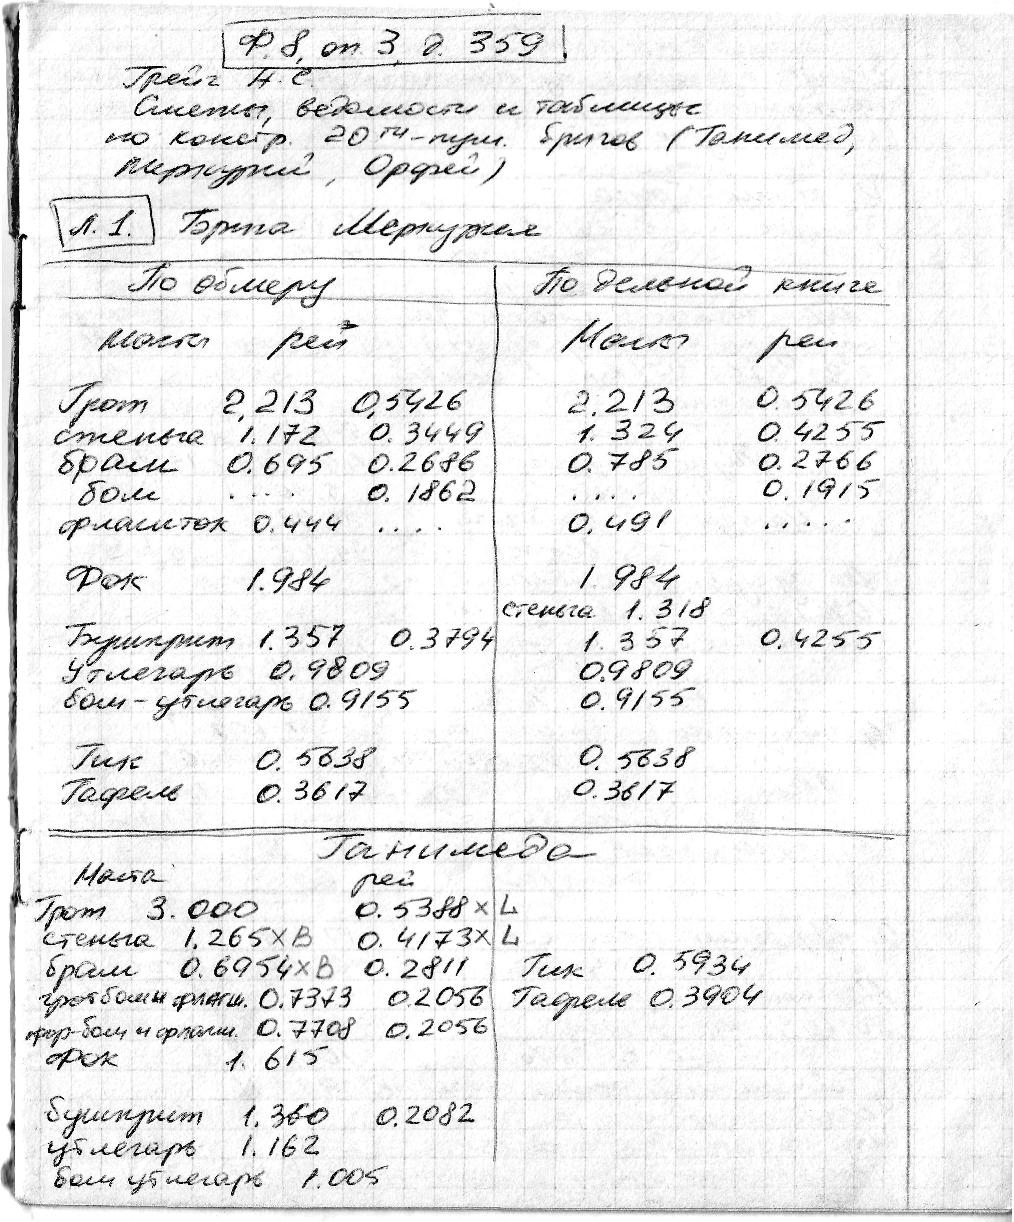 Ф. 8, оп. 3, д. 359
Грейг А.С.
Сметы, ведомости и таблицы
по констр. 20ти-пуш. бригов (Ганимед,
Меркурий, Орфей)
Л. 1. Брига Меркурия
По обмеру По дельной книге
Мачты реи Мачты реи
Грот 2,213 0,5426 2.213 0.5426
стеньга 1.172 0.3449 1.324 0.4255
брам 0.695 0.2686 0.785 0.2766
бом .... 0.1862 .... 0.1915
флагшток 0.444 .... 0.491 .....
Фок 1.984 1.984
стеньга 1.318
Бушприт 1.357 0.3794 1.357 0.4255
Утлегарь 0.9809 0.9809
бом-утлегарь 0.9155 0.9155
Гик 0.5638 0.5638
Гафель 0.3617 0.3617
Ганимеда
Мачта рей
Грот 3.000 0.5388 x L
стеньга 1.265 x B 0.4173 x L
брам 0.6954 x B 0.2811 Гик 0.5934
грот бом и флагш. 0.7373 0.2056 Гафель 0.3904
фор-бом и флагш. 0.7708 0.2056
Фок 1.615
бушприт 1.360 0.2082
утлегарь 1.162
бом утлегарь 1.005